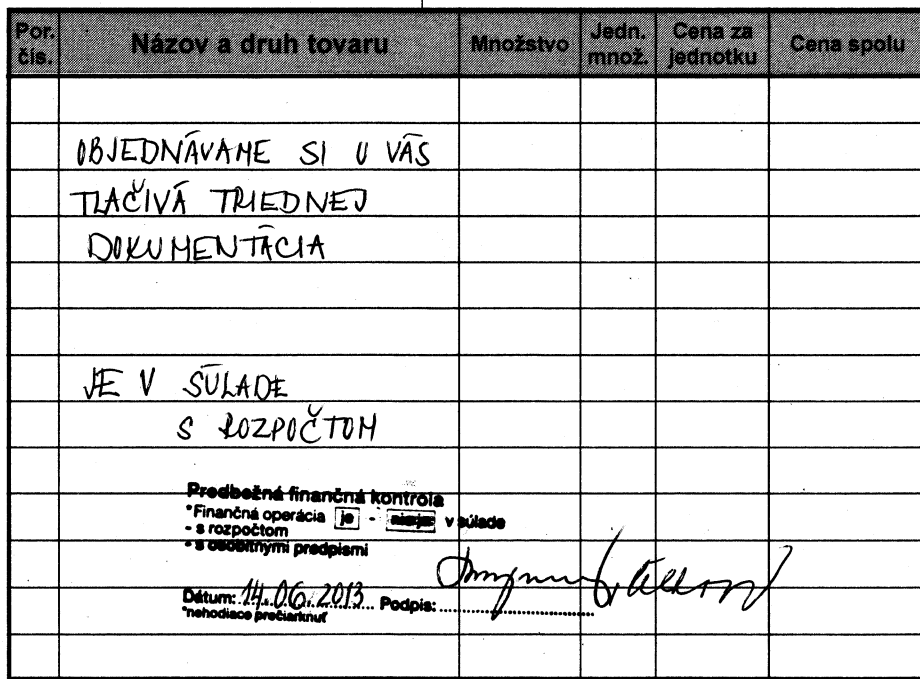 Por. čís. Názov a druh tovaru Množstvo Jedn. množ. Cena za jednotku Cena spolu
OBJEDNÁVAME SI U VÁS
TLAČIVÁ TRIEDNEJ
DOKUMENTÁCIA
JE V SÚLADE
S ROZPOČTOM
Predbežná finančná kontrola
*Finančná operácia je - nie je v súlade
- s rozpočtom
- s osobitnými predpismi
Dátum: 14.06.2013 Podpis:
*nehodiace prečiarknuť